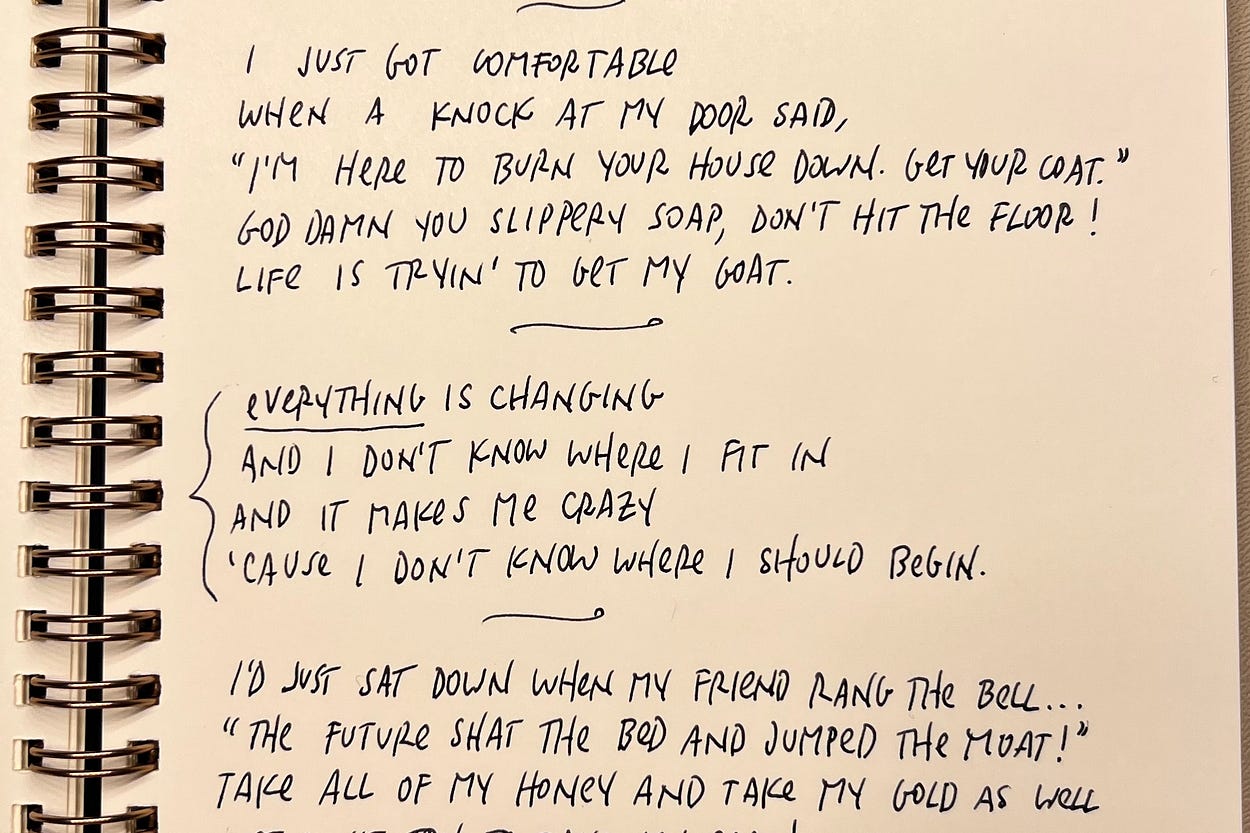 I JUST GOT COMFORTABLE
WHEN A KNOCK AT MY DOOR SAID,
“I'M HERE TO BURN YOUR HOUSE DOWN. GET YOUR COAT.”
GOD DAMN YOU SLIPPERY SOAP, DON'T HIT THE FLOOR!
LIFE IS TRYIN' TO GET MY GOAT.
EVERYTHING IS CHANGING
AND I DON'T KNOW WHERE I FIT IN
AND IT MAKES ME CRAZY
'CAUSE I DON'T KNOW WHERE I SHOULD BEGIN.
I'D JUST SAT DOWN WHEN MY FRIEND RANG THE BELL...
“THE FUTURE SHAT THE BED AND JUMPED THE MOAT!”
TAKE ALL OF MY HONEY AND TAKE MY GOLD AS WELL